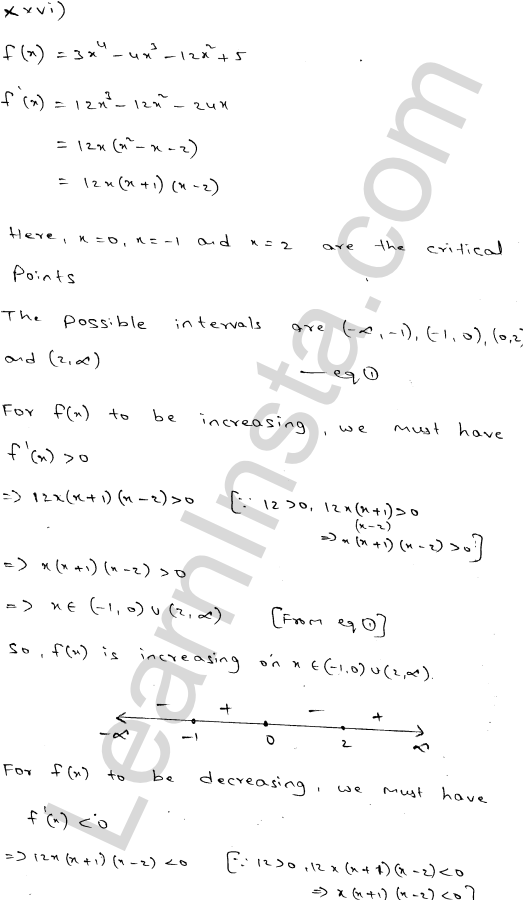 xxvi)
f(x) = 3x⁴ - 4x³ - 12x² + 5
f'(x) = 12x³ - 12x² - 24x
= 12x(x² - x - 2)
= 12x(x+1)(x-2)
Here, x=0, x=-1 and x=2 are the critical
Points
The possible intervals are (-∞,-1), (-1,0), (0,2)
and (2,∞) — eq①
For f(x) to be increasing, we must have
f'(x) > 0
=> 12x(x+1)(x-2)>0 [∵ 12>0, 12x(x+1)>0
(x-2)
=> x(x+1)(x-2)>0]
=> x(x+1)(x-2)>0
=> x∈ (-1,0)∪(2,∞) [From eq①]
So, f(x) is increasing on x∈(-1,0)∪(2,∞).
- + - +
-∞ -1 0 2 ∞
For f(x) to be decreasing, we must have
f'(x) <0
=> 12x(x+1)(x-2)<0 [∵ 12>0, 12x(x+1)(x-2)<0
=> x(x+1)(x-2)<0]
LearnInsta.com